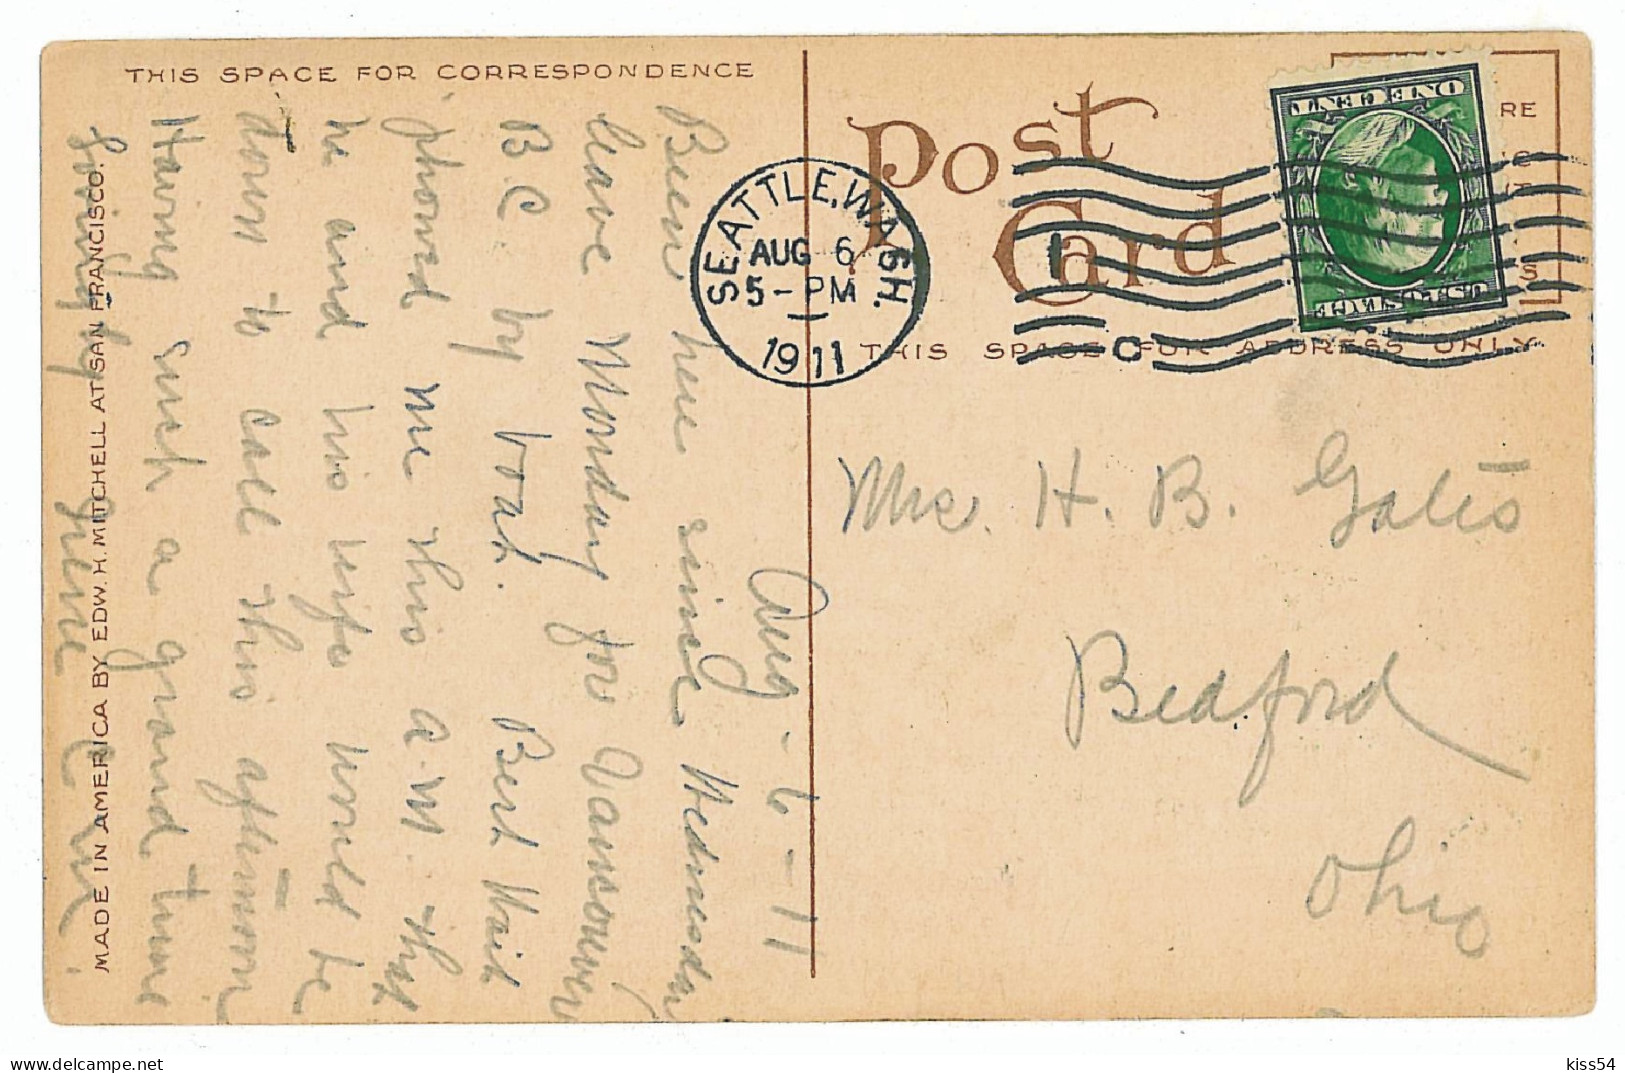 THIS SPACE FOR CORRESPONDENCE
Aug - 6 - 11
Been here since Wednesday
leave Monday for Vancouver
B C by boat. Bert Wait
phoned me this a.m. that
he and his wife would be
down to call this afternoon
Having such a grand time
Lovingly
MADE IN AMERICA BY EDW. H. MITCHELL AT SAN FRANCISCO.
Post Card
SEATTLE, WASH.
AUG 6
5 - PM
1911
1
C
ONE CENT
U.S. POSTAGE
RE
S
THIS SPACE FOR ADDRESS ONLY
Mrs. H. B. Gates
Bedford
Ohio
kiss54